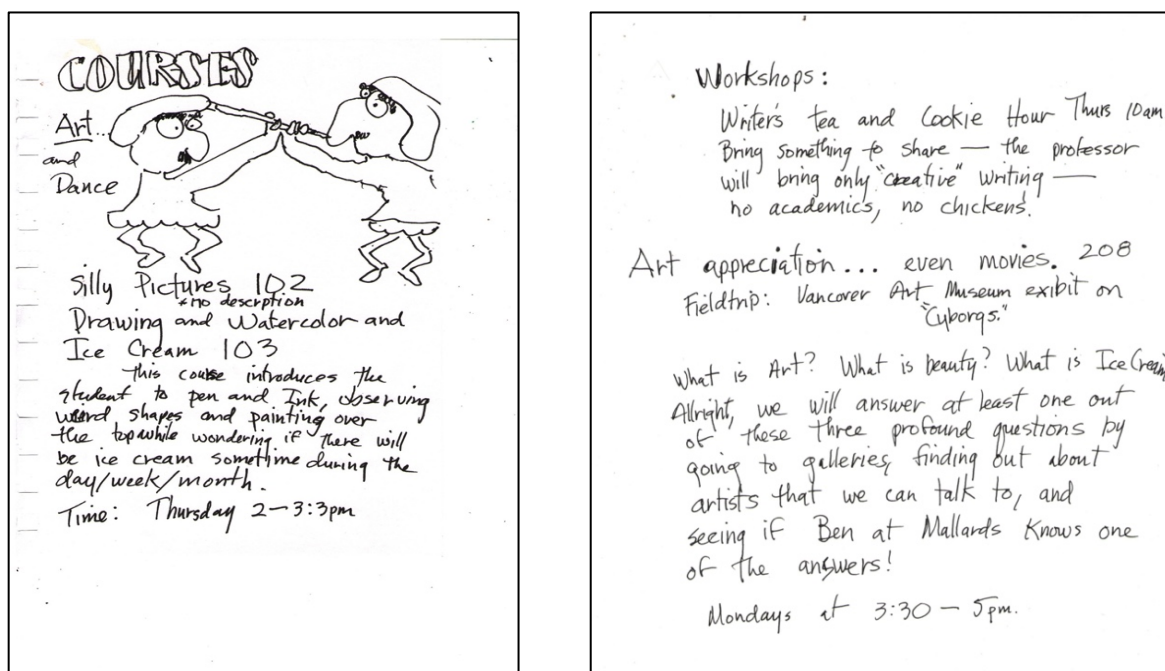 COURSES
Art...
and
Dance
Silly Pictures 102
*no descrption
Drawing and Watercolor and
Ice Cream 103
This course introduces the
student to pen and Ink, observing
weird shapes and painting over
the top while wondering if there will
be ice cream sometime during the
day/week/month.
Time: Thursday 2-3:3pm
Workshops:
Writer's tea and Cookie Hour Thurs 10am
Bring something to share — the professor
will bring only "creative" writing —
no academics, no chickens.
Art appreciation... even movies. 208
Fieldtrip: Vancover Art Museum exibit on
"Cyborgs."
What is Art? What is beauty? What is Ice Cream
Allright, we will answer at least one out
of these three profound questions by
going to galleries, finding out about
artists that we can talk to, and
seeing if Ben at Mallards Knows one
of the answers!
Mondays at 3:30 - 5pm.